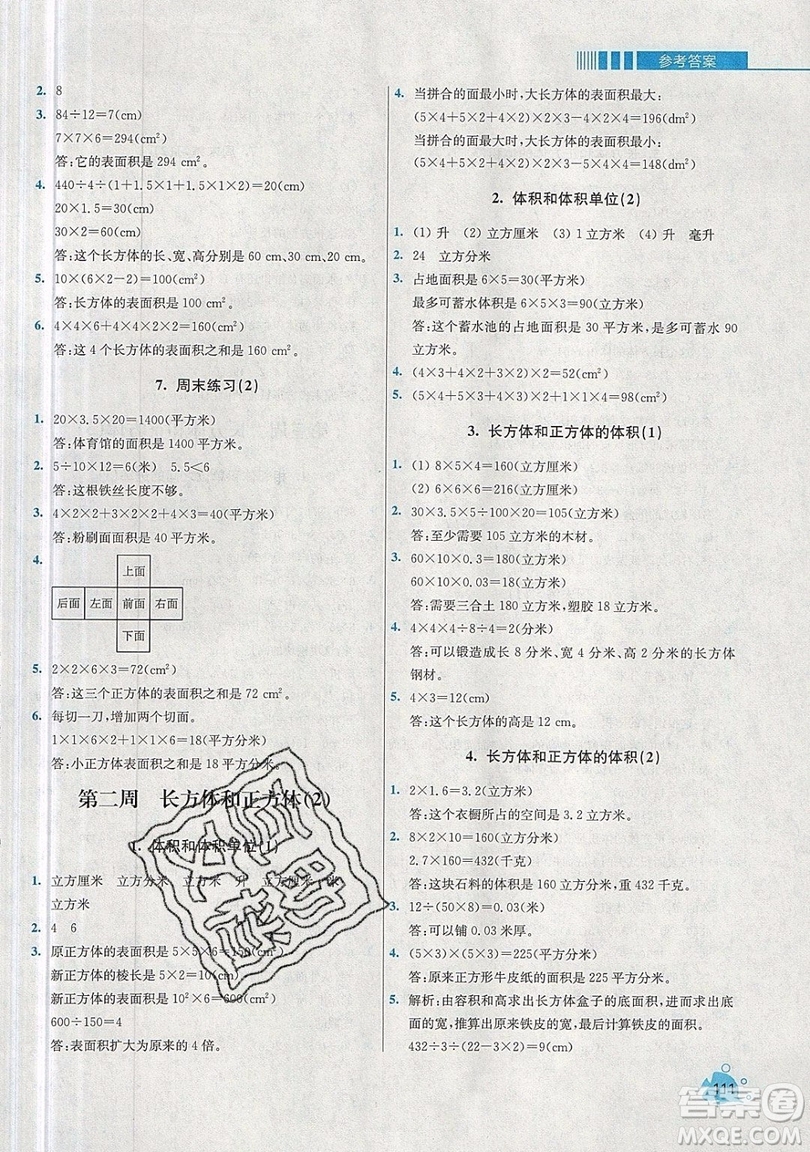 参考答案
2. 8
3. 84÷12=7(cm)
7×7×6=294(cm²)
答:它的表面积是 294 cm²。
4. 440÷4÷(1+1.5×1+1.5×1×2)=20(cm)
20×1.5=30(cm)
30×2=60(cm)
答:这个长方体的长、宽、高分别是 60 cm、30 cm、20 cm。
5. 10×(6×2−2)=100(cm²)
答:长方体的表面积是 100 cm²。
6. 4×4×6+4×4×2×2=160(cm²)
答:这 4 个长方体的表面积之和是 160 cm²。
7. 周末练习(2)
1. 20×3.5×20=1400(平方米)
答:体育馆的面积是 1400 平方米。
2. 5÷10×12=6(米) 5.5<6
答:这根铁丝长度不够。
3. 4×2×2+3×2×2+4×3=40(平方米)
答:粉刷面面积是 40 平方米。
4.
上面
后面 左面 前面 右面
下面
5. 2×2×6×3=72(cm²)
答:这三个正方体的表面积之和是 72 cm²。
6. 每切一刀,增加两个切面。
1×1×6×2+1×1×6=18(平方分米)
答:小正方体表面积之和是 18 平方分米。
第二周 长方体和正方体(2)
1. 体积和体积单位(1)
1. 立方厘米 立方分米 立方米 升 立方厘米 米
立方米
2. 4 6
3. 原正方体的表面积是 5×5×6=150(cm²)
新正方体的棱长是 5×2=10(cm)
新正方体的表面积是 10²×6=600(cm²)
600÷150=4
答:表面积扩大为原来的 4 倍。
4. 当拼合的面最小时,大长方体的表面积最大:
(5×4+5×2+4×2)×2×3−4×2×4=196(dm²)
当拼合的面最大时,大长方体的表面积最小:
(5×4+5×2+4×2)×2×3−5×4×4=148(dm²)
2. 体积和体积单位(2)
1. (1) 升 (2) 立方厘米 (3) 1 立方米 (4) 升 毫升
2. 24 立方分米
3. 占地面积是 6×5=30(平方米)
最多可蓄水体积是 6×5×3=90(立方米)
答:这个蓄水池的占地面积是 30 平方米,最多可蓄水 90
立方米。
4. (4×3+4×2+3×2)×2=52(cm²)
5. (5×4+5×3+4×3)×2+1×1×4=98(cm²)
3. 长方体和正方体的体积(1)
1. (1) 8×5×4=160(立方厘米)
(2) 6×6×6=216(立方厘米)
2. 30×3.5×5×20÷100=105(立方米)
答:至少需要 105 立方米的木材。
3. 60×10×0.3=180(立方米)
60×10×0.03=18(立方米)
答:需要三合土 180 立方米,塑胶 18 立方米。
4. 4×4×4÷8÷4=2(分米)
答:可以锻造成长 8 分米、宽 4 分米、高 2 分米的长方体
钢材。
5. 4×3=12(cm)
答:这个长方体的高是 12 cm。
4. 长方体和正方体的体积(2)
1. 2×1.6=3.2(立方米)
答:这个衣橱所占的空间是 3.2 立方米。
2. 8×2×10=160(立方分米)
2.7×160=432(千克)
答:这块石料的体积是 160 立方分米,重 432 千克。
3. 12÷(50×8)=0.03(米)
答:可以铺 0.03 米厚。
4. (5×3)×(5×3)=225(平方分米)
答:原来正方形牛皮纸的面积是 225 平方分米。
5. 解析:由容积和高求出长方体盒子的底面积,由底
面的宽,推算出原来铁皮的宽,最后计算铁皮的面积。
432÷3÷(22−3×2)=9(cm)
111
答案圈
MXQE.COM